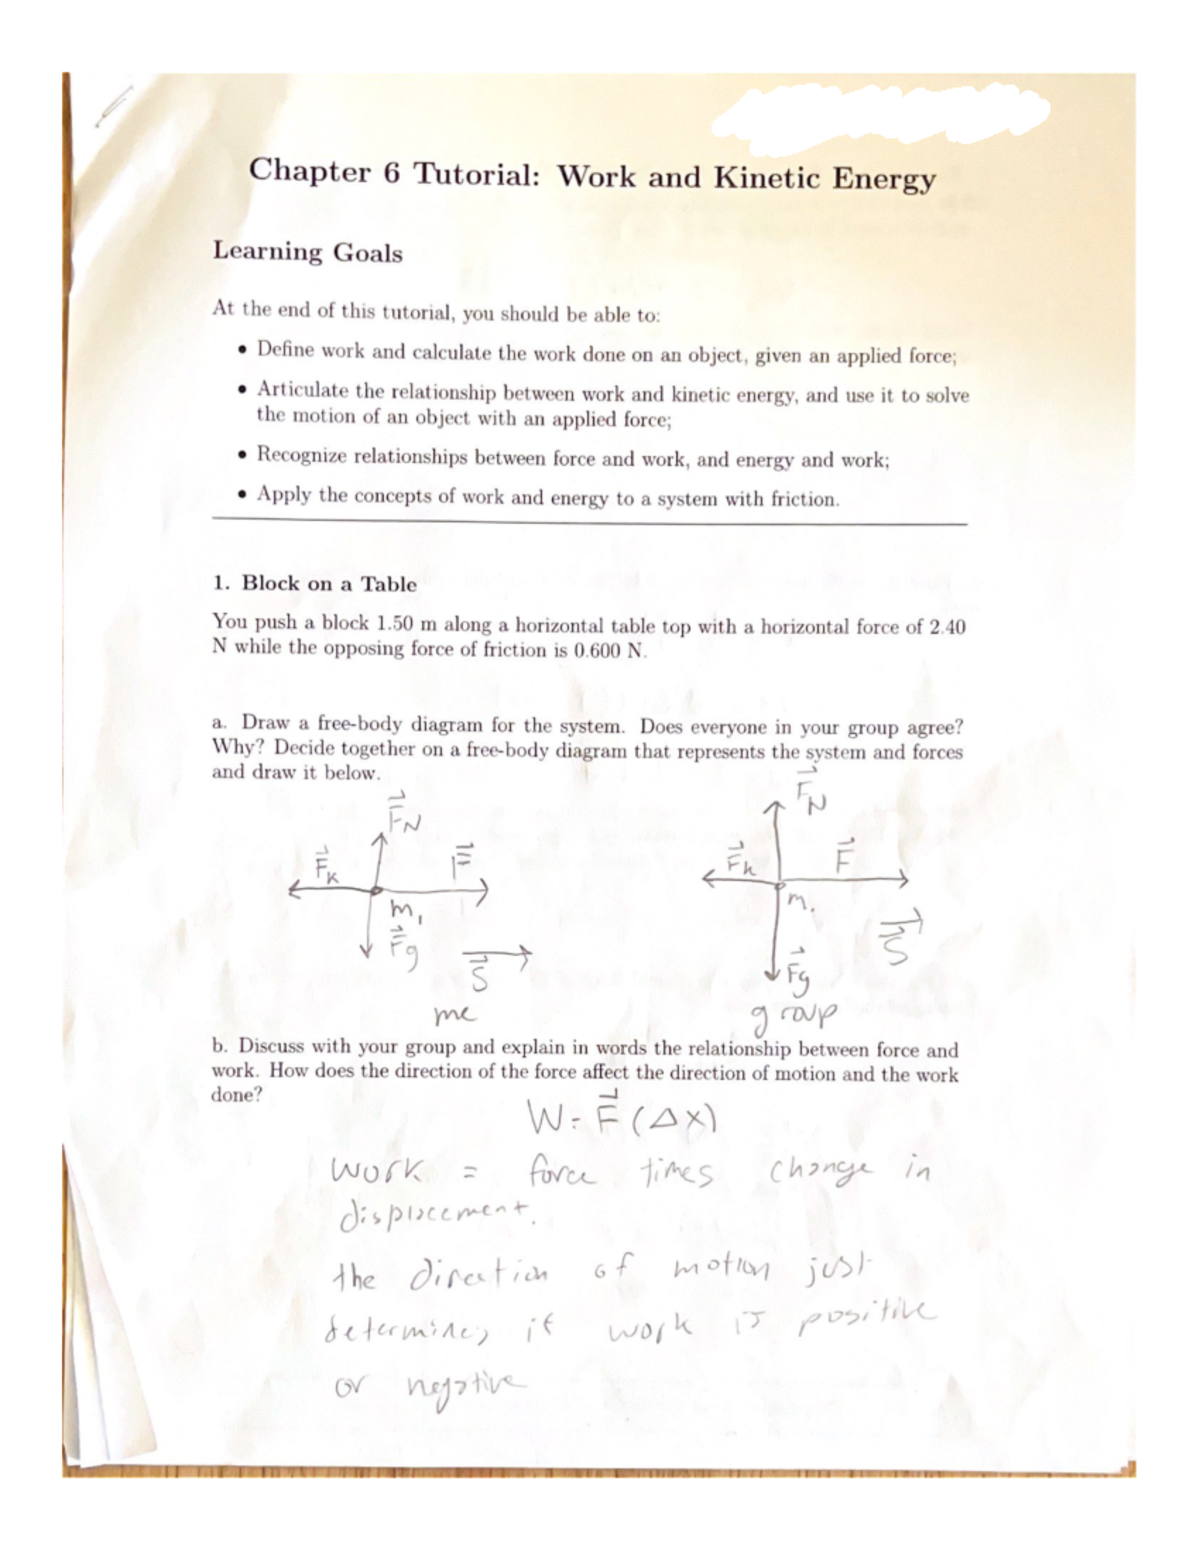 Chapter 6 Tutorial: Work and Kinetic Energy
Learning Goals
At the end of this tutorial, you should be able to:
• Define work and calculate the work done on an object, given an applied force;
• Articulate the relationship between work and kinetic energy, and use it to solve
the motion of an object with an applied force;
• Recognize relationships between force and work, and energy and work;
• Apply the concepts of work and energy to a system with friction.
1. Block on a Table
You push a block 1.50 m along a horizontal table top with a horizontal force of 2.40
N while the opposing force of friction is 0.600 N.
a. Draw a free-body diagram for the system. Does everyone in your group agree?
Why? Decide together on a free-body diagram that represents the system and forces
and draw it below.
F⃗N
F⃗K
F⃗
m₁
F⃗g
S⃗
me
F⃗N
F⃗k
F⃗
m.
S⃗
F⃗g
group
b. Discuss with your group and explain in words the relationship between force and
work. How does the direction of the force affect the direction of motion and the work
done?
W = F⃗ (Δx)
work = force times change in
displacement.
the direction of motion just
determines if work is positive
or negative